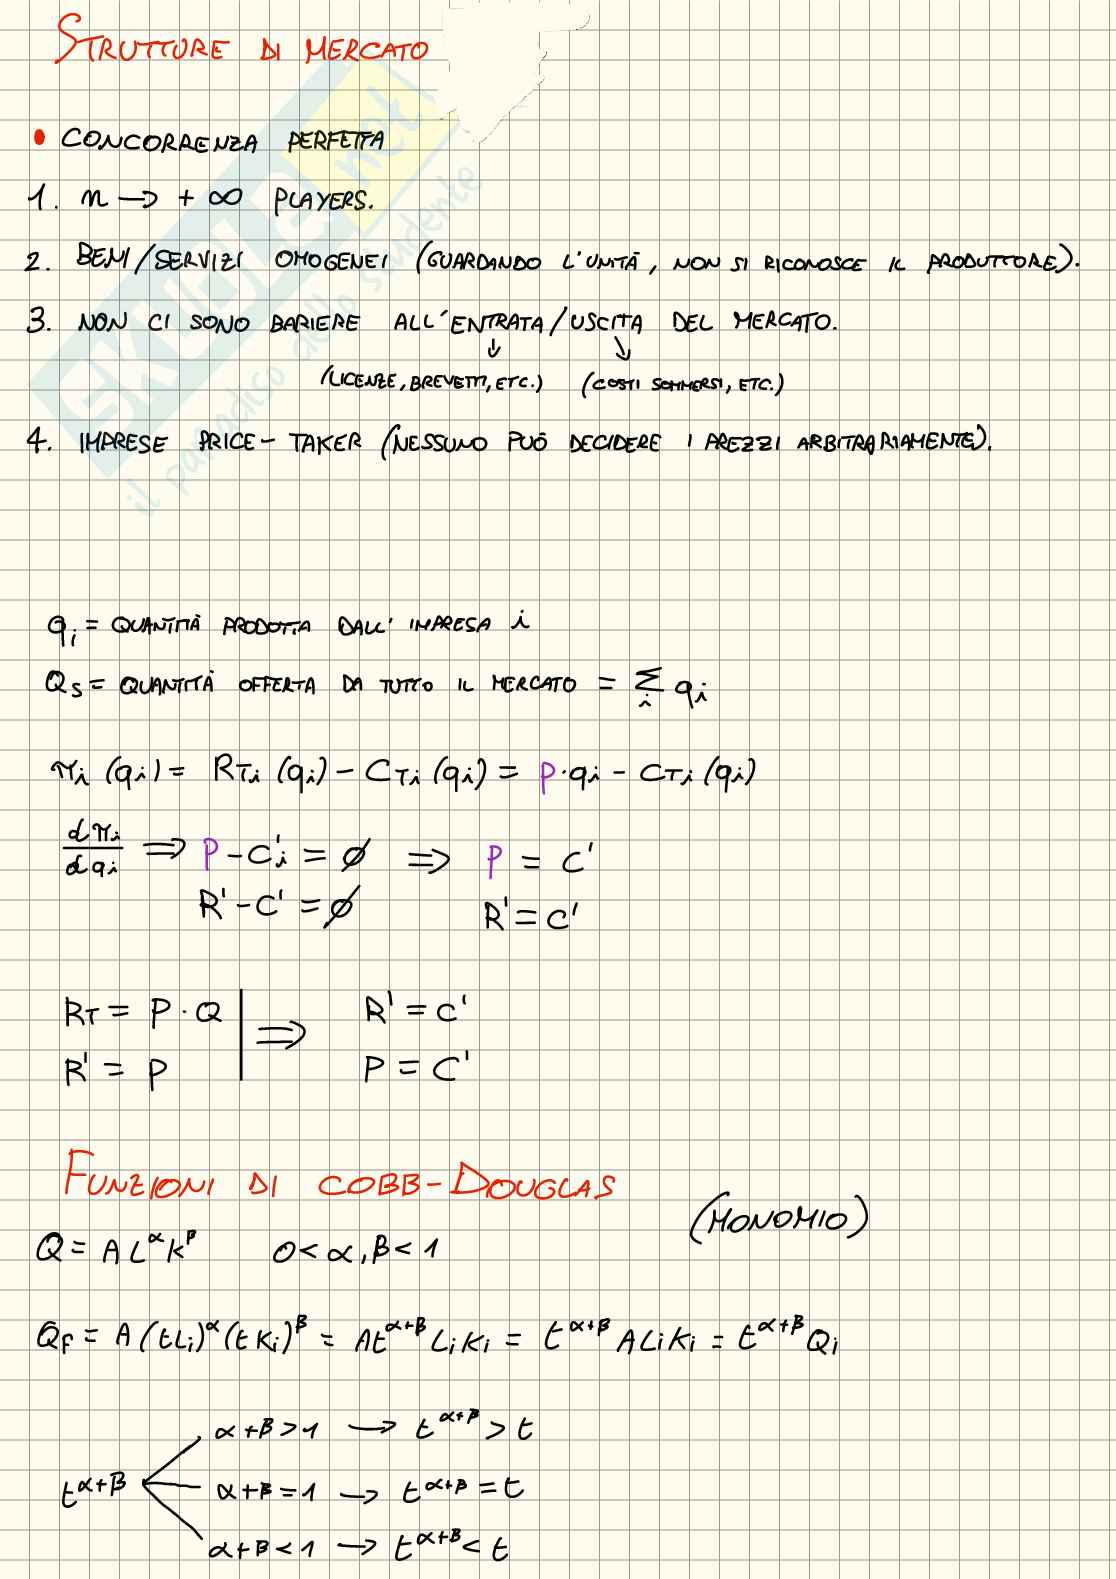 STRUTTURE DI MERCATO
• CONCORRENZA PERFETTA
1. n → + ∞ PLAYERS.
2. BENI/SERVIZI OMOGENEI (GUARDANDO L'UNITÀ, NON SI RICONOSCE IL PRODUTTORE).
3. NON CI SONO BARIERE ALL'ENTRATA/USCITA DEL MERCATO.
↓ ↘
(LICENZE, BREVETTI, ETC.) (COSTI SOMMERSI, ETC.)
4. IMPRESE PRICE-TAKER (NESSUNO PUÒ DECIDERE I PREZZI ARBITRARIAMENTE).
SKUOLA.net
il paradiso dello studente
qi = QUANTITÀ PRODOTTA DALL'IMPRESA i
Qs = QUANTITÀ OFFERTA DA TUTTO IL MERCATO = Σi qi
πi (qi) = RTi (qi) - CTi (qi) = P·qi - CTi (qi)
dπi/dqi ⇒ P - C'i = ∅ ⇒ P = C'
R' - C' = ∅ R' = C'
RT = P · Q | ⇒ R' = C'
R' = P P = C'
FUNZIONI DI COBB-DOUGLAS
(MONOMIO)
Q = A L^α K^β 0 < α, β < 1
Qf = A (tLi)^α (tKi)^β = At^α+β Li Ki = t^α+β A Li Ki = t^α+β Qi
α+β > 1 → t^α+β > t
t^α+β α+β = 1 → t^α+β = t
α+β < 1 → t^α+β < t